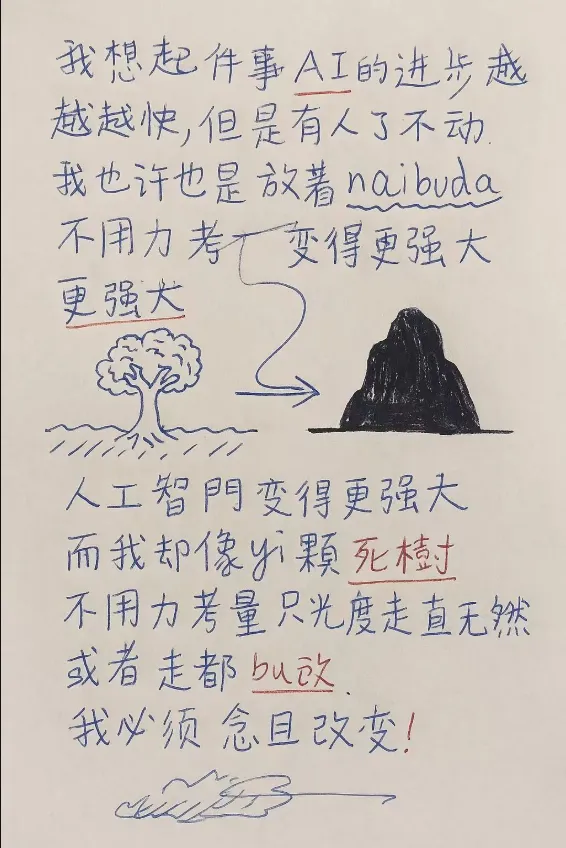 我想起件事AI的进步越
越越快,但是有人了不动.
我也许也是放着naibuda
不用力考 变得更强大
更强大
人工智門变得更强大
而我却像yi顆死樹
不用力考量只光度走直无然
或者走都bu改.
我必须念且改变!